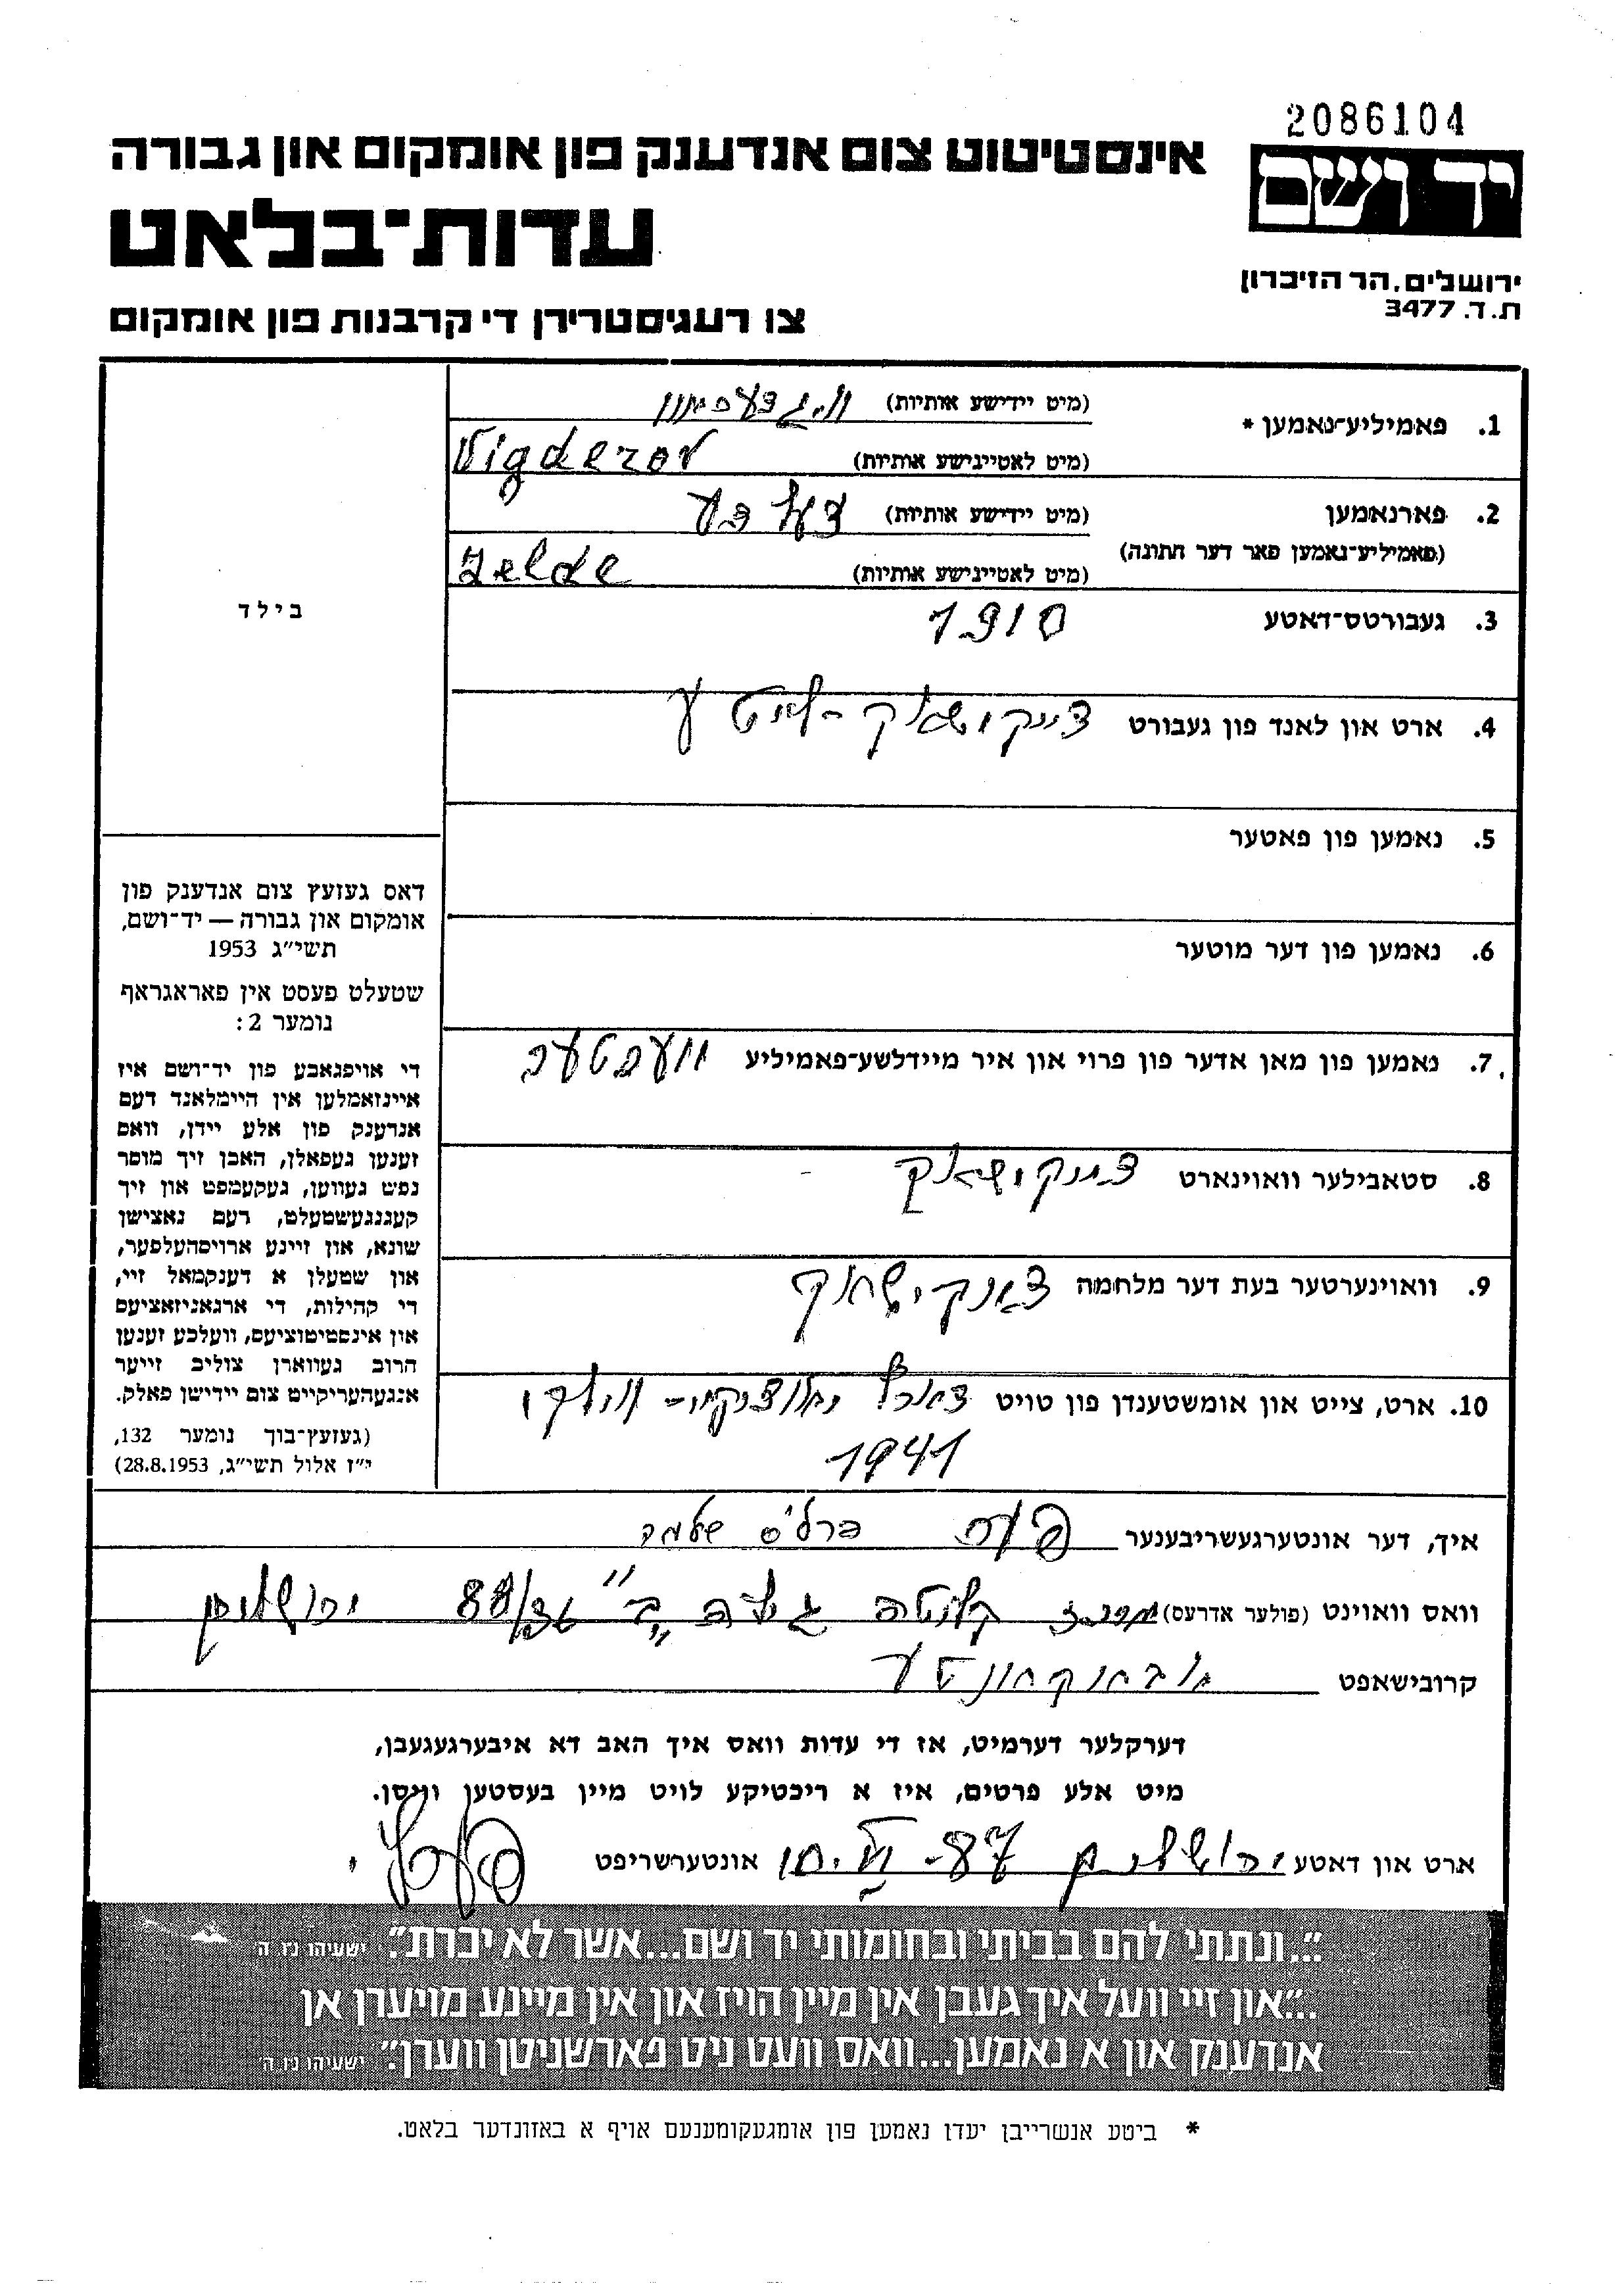 2086104
אינסטיטוט צום אנדענק פון אומקום און גבורה
יד ושם
עדות־בלאט
ירושלים, הר הזיכרון
ת.ד. 3477
צו רעגיסטרירן די קרבנות פון אומקום
1. פאמיליע־נאמען * (מיט יידישע אותיות)
(מיט לאטייניישע אותיות) Vigderov
2. פארנאמען (מיט יידישע אותיות) זעלדע
(פאמיליע־נאמען פאר דער חתונה) (מיט לאטייניישע אותיות) Zelde
3. געבורטס־דאטע 1910
4. ארט און לאנד פון געבורט ליטע
5. נאמען פון פאטער
6. נאמען פון דער מוטער
7. נאמען פון מאן אדער פון פרוי און איר מיידלשע־פאמיליע
8. סטאבילער וואוינארט
9. וואוינערטער בעת דער מלחמה
10. ארט, צייט און אומשטענדן פון טויט
1941
בילד
דאס געזעץ צום אנדענק פון
אומקום און גבורה — יד־ושם,
תשי״ג 1953
שטעלט פעסט אין פאראגראף
נומער 2:
די אויפגאבע פון יד־ושם איז
איינזאמלען אין היימלאנד דעם
אנדענק פון אלע יידן, וואס
זענען געפאלן, האבן זיך מוסר
נפש געווען, געקעמפט און זיך
קעגנגעשטעלט, דעם נאצישן
שונא, און זיינע ארויסהעלפער,
און שטעלן א דענקמאל זיי,
די קהילות, די ארגאניזאציעס
און אינסטיטוציעס, וועלכע זענען
הרוב געווארן צוליב זייער
אנגעהעריקייט צום יידישן פאלק.
(געזעץ־בוך נומער 132,
י״ז אלול תשי״ג, 28.8.1953)
איך, דער אונטערגעשריבענער פרלס שלמה
וואס וואוינט (פולער אדרעס) מרכז קליטה גילה 88/36 ירושלים
קרובישאפט
דערקלער דערמיט, אז די עדות וואס איך האב דא איבערגעגעבן,
מיט אלע פרטים, איז א ריכטיקע לויט מיין בעסטען וויסן.
ארט און דאטע ירושלים אונטערשריפט
"...ונתתי להם בביתי ובחומותי יד ושם...אשר לא יכרת". ישעיהו נו ה
"...און זיי וועל איך געבן אין מיין הויז און אין מיינע מויערן אן
אנדענק און א נאמען...וואס וועט ניט פארשניטן ווערן". ישעיהו נו ה
* ביטע אנשרייבן יעדן נאמען פון אומגעקומענעם אויף א באזונדער בלאט.